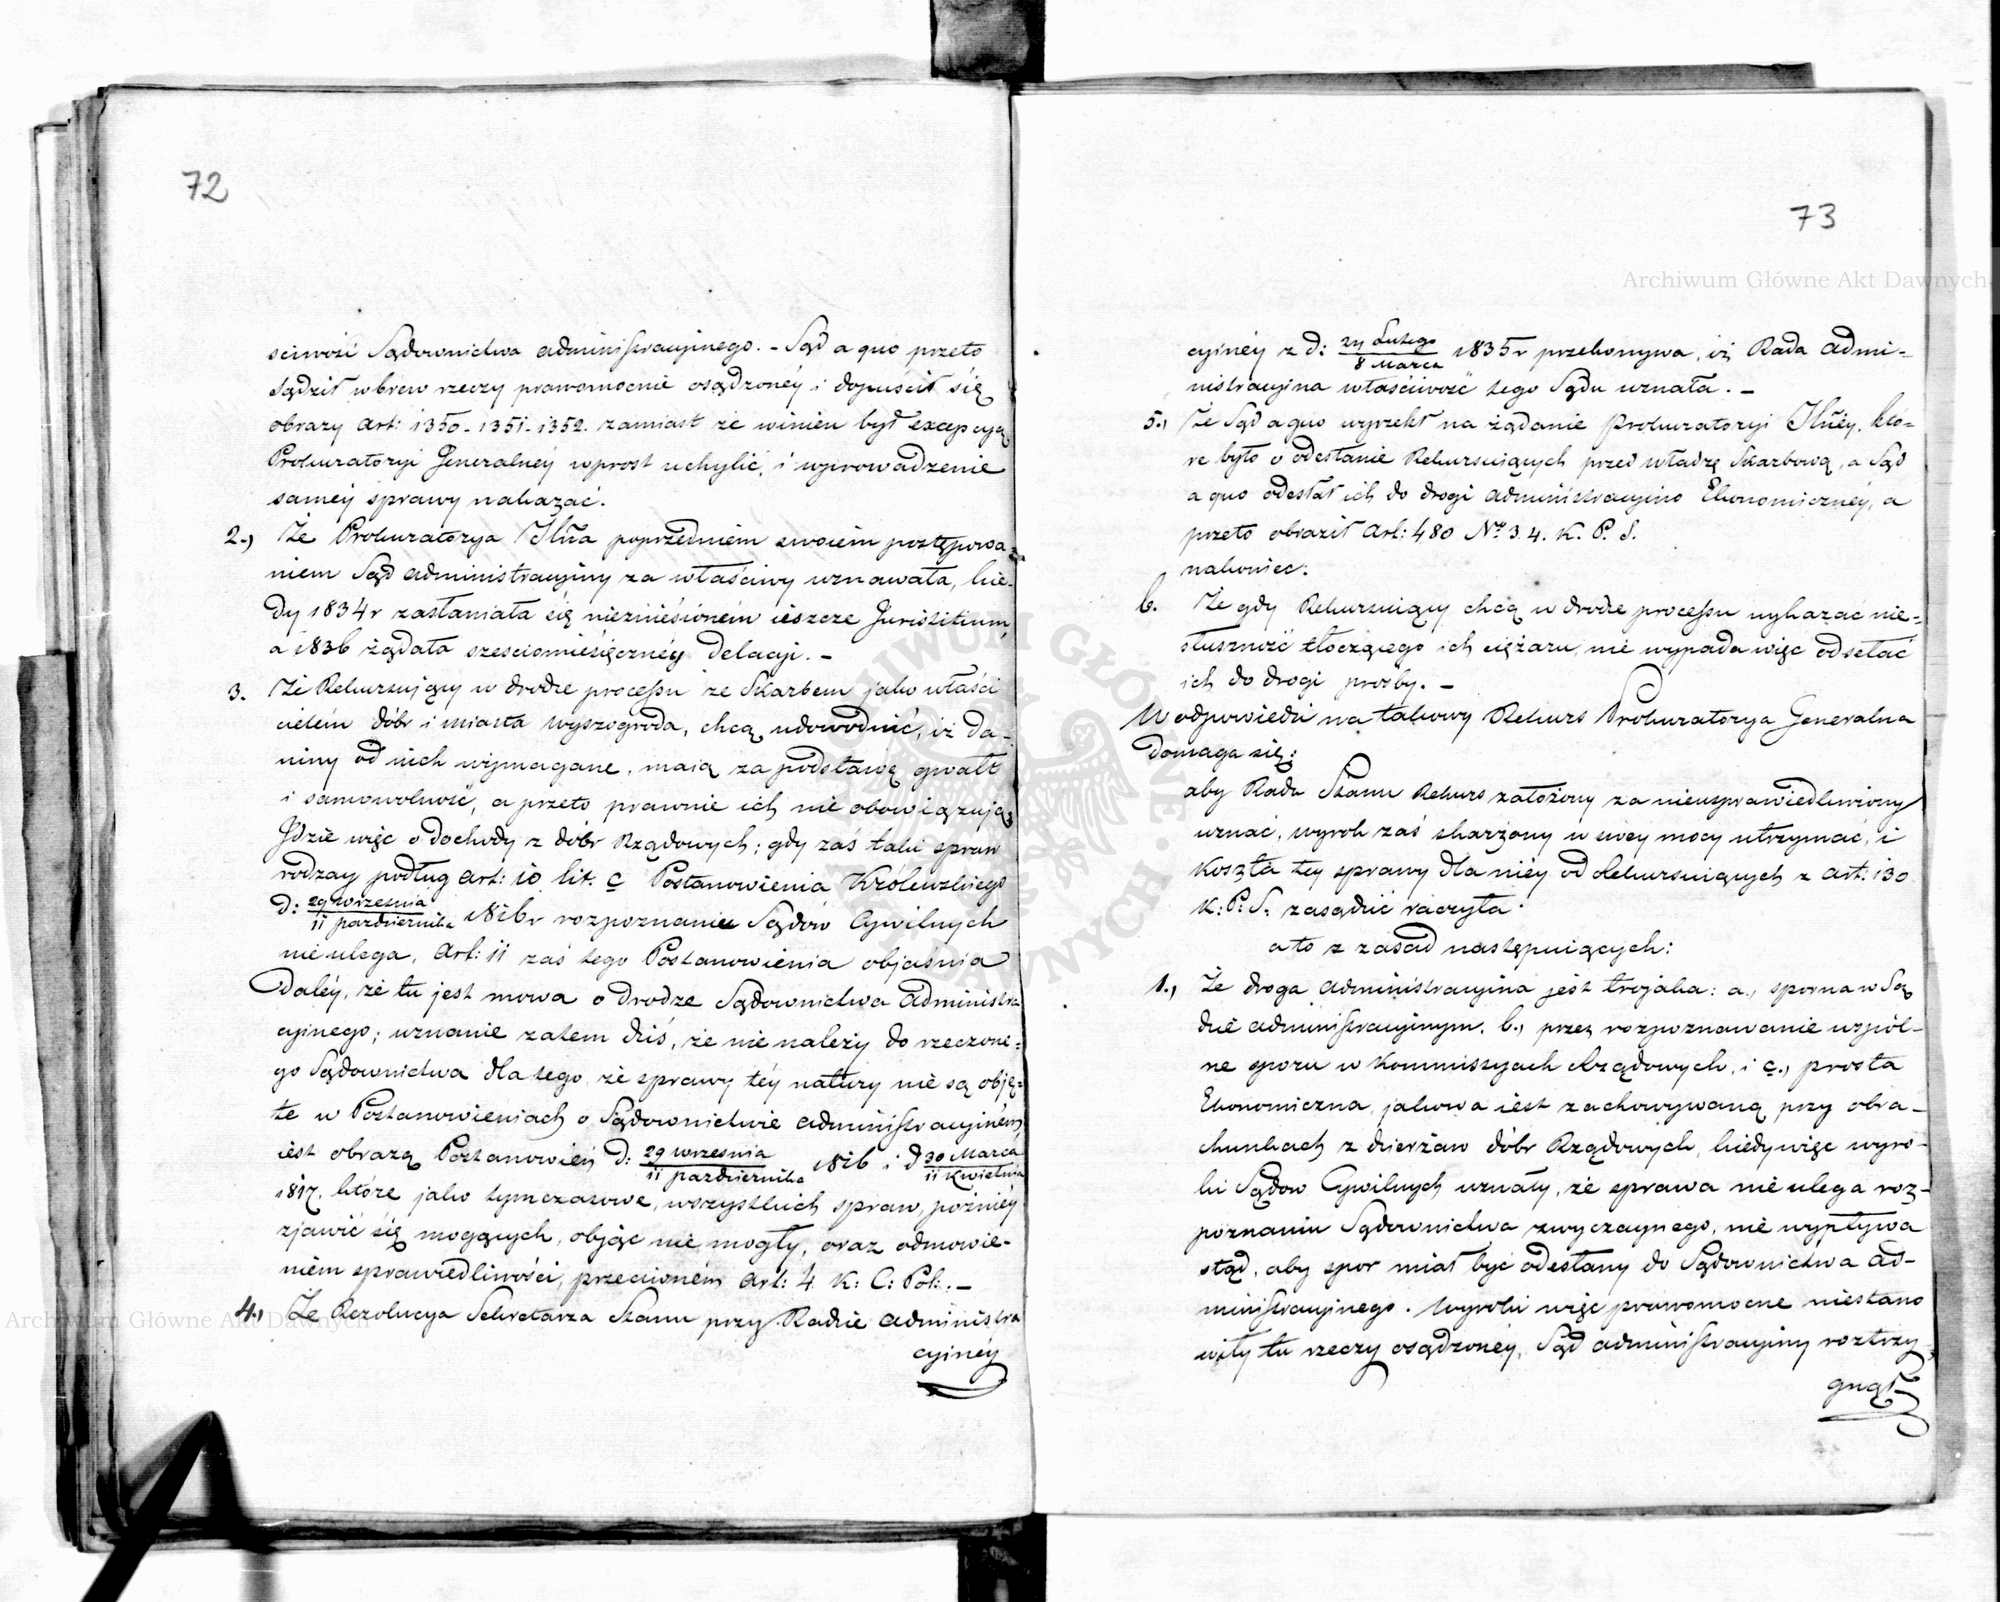 72
sciwość Sądownictwa administracyjnego. – Sąd a quo przeto
sądził wbrew rzeczy prawomocnie osądzonéy i dopuścił się
obrazy Art: 1350. 1351. 1352. zamiast że winien był excepcyą
Prokuratoryi Generalnéy wprost uchylić, i wyprowadzenie
saméy sprawy nakazać.
2., Że Prokuratorya Jlna poprzedniém swoiem postępowa=
niem Sąd administracyiny za właściwy uznawała, kie-
dy 1834 r zasłaniała się niezniesioném ieszcze Juristitium,
a 1836 żądała szesciomiesięcznéy Delacyi. –
3. Że Rekursuiący w drodze processu ze Skarbem jako właści
cielem dóbr i miasta Wyszogroda, chcą udowodnić, iż da-
niny od nich wymagane, maią za podstawę gwałt
i samowolność, a przeto prawnie ich nie obowiązują,
Jdzie więc o dochody z dóbr Rządowych; gdy zaś taki spraw
rodzay podług Art: 10 lit. c Postanowienia Królewskiego
d: 29 Września / 11 października 1816 r rozpoznaniu Sądów Cywilnych
nie ulega, Art: 11 zaś tego Postanowienia objaśnia
daléy, że tu jest mowa o drodze Sądownictwa Administra
cyinego; uznanie zatem dziś, że nie należy do rzeczone=
go Sądownictwa dla tego, że sprawy téy natury nie są obję=
te w Postanowieniach o Sądownictwie administracyiném,
iest obrazą Postanowień d: 29 Września / 11 października 1816 i d 30 Marca / 11 Kwietnia
1817. które jako tymczasowe, wszystkich spraw, poźniéy
zjawić się mogących, objąć nie mogły, oraz odmowie-
niem sprawiedliwości, przeciwném Art: 4 K: C: Pol:. –
4., Że Rezolucya Sekretarza Stanu przy Radzie Administra
cyinéy
73
cyinéy z d: 24 Lutego / 8 Marca 1835 r przekonywa, iż Rada Admi-
nistracyina właściwość tego Sądu uznała. –
5., Że Sąd a quo wyrzekł na żądanie Prokuratoryi Jlnéy, któ-
re było o odesłanie Rekursuiących przed władzę Skarbową, a Sąd
a quo odesłał ich do drogi administracyino Ekonomicznéy, a
przeto obraził Art: 480 No 3. 4. K. P. S.
nakoniec.
6. Że gdy Rekursuiący chcą w drodze processu wykazać nie-
słuszność tłoczącego ich ciężaru, nie wypada więc odsełać
ich do drogi prośby. –
W odpowiedzi na takowy Rekurs Prokuratorya Generalna
domaga się:
aby Rada Stanu Rekurs założony za nieusprawiedliwiony
uznać, wyrok zaś skarżony w swey mocy utrzymać, i
Koszta tey sprawy dla niéy od Rekursuiących z Art: 130
K: P: S: zasądzić raczyła.
a to z zasad następuiących:
1., Że droga administracyina jest trojaka: a., sporna w Są
dzie administracyinym. b., przez rozpoznawanie wspól-
ne sporu w Kommissyach Rządowych, i c., prosta
Ekonomiczna, jakowa iest zachowywaną przy obra-
chunkach z dzierżaw dóbr Rządowych, kiedy więc wyro-
ki Sądów Cywilnych uznały, że sprawa nie ulega roz-
poznaniu Sądownictwa zwyczaynego, nie wypływa
stąd, aby spor miał być odesłany do Sądownictwa ad-
ministracyinego. Wyroki więc prawomocne niestano
wiły tu rzeczy osądzonéy, Sąd administracyiny roztrzy
gnął
Archiwum Główne Akt Dawnych
Archiwum Główne Akt Dawnych
ARCHIWUM GŁÓWNE AKT DAWNYCH